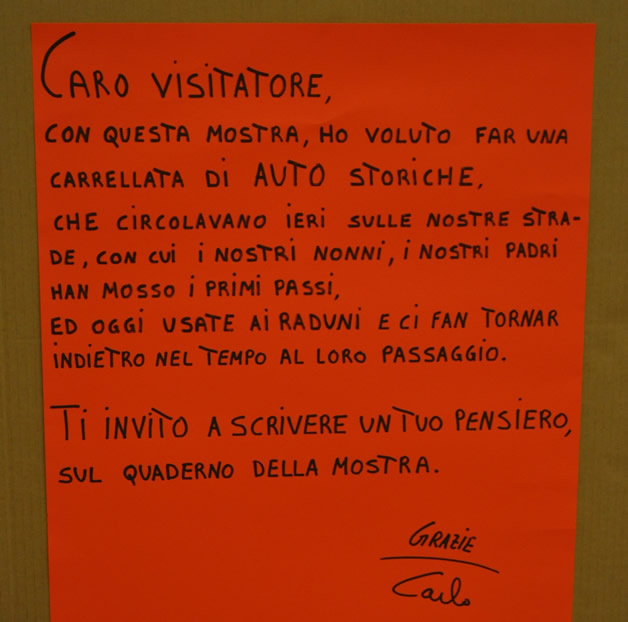 CARO VISITATORE,
CON QUESTA MOSTRA, HO VOLUTO FAR UNA
CARRELLATA DI AUTO STORICHE,
CHE CIRCOLAVANO IERI SULLE NOSTRE STRA-
DE, CON CUI I NOSTRI NONNI, I NOSTRI PADRI
HAN MOSSO I PRIMI PASSI,
ED OGGI USATE AI RADUNI E CI FAN TORNAR
INDIETRO NEL TEMPO AL LORO PASSAGGIO.
TI INVITO A SCRIVERE UN TUO PENSIERO,
SUL QUADERNO DELLA MOSTRA.
GRAZIE
Carlo